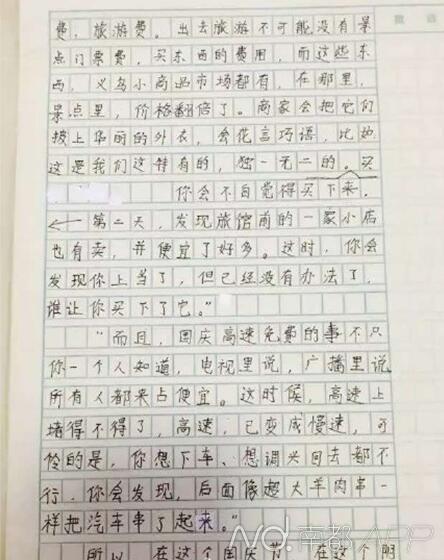 费，旅游费。出去旅游不可能没有景
点门票费，买东西的费用，而这些东
西，义乌小商品市场都有，在那里，
景点里，价格翻倍了。商家会把它们
披上华丽的外衣，会花言巧语，比如
这是我们这特有的，独一无二的。买
你会不自觉得买下来，
第二天，发现旅馆前的一家小店
也有卖，并便宜了好多。这时，你会
发现你上当了，但已经没有办法了，
谁让你买下了它。”
“而且，国庆高速免费的事不只
你一个人知道，电视里说，广播里说
所有人都来占便宜。这时候，高速上
堵得不得了，高速，已变成慢速，可
怜的是，你想下车、想调头回去都不
行。你会发现，后面像超大羊肉串一
样把汽车串了起来。”
所以，在这个国庆节，在这个阴
南都APP